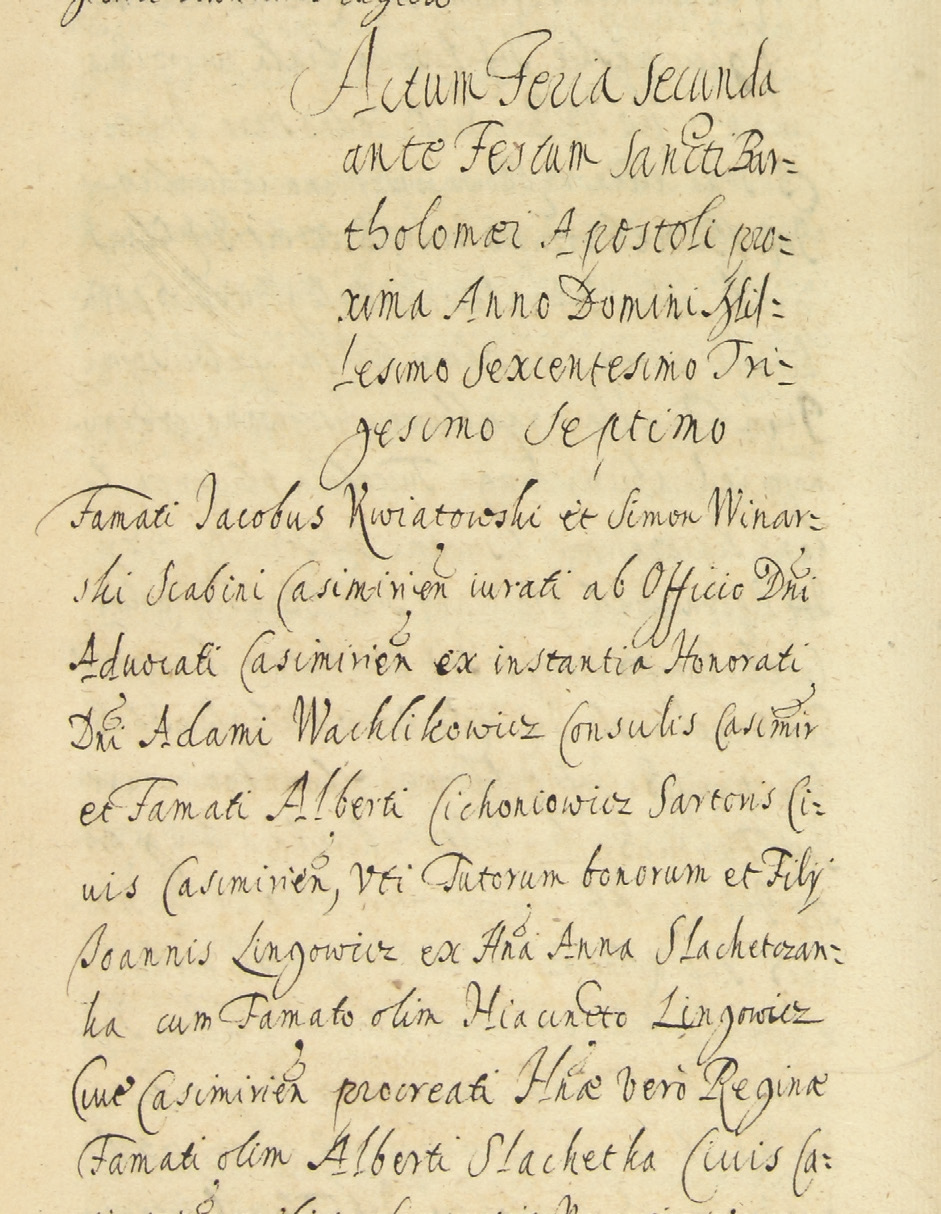 Actum Feria Secunda
ante Festum Sancti Bar=
tholomæi Apostoli pro=
xima Anno Domini Mil=
lesimo Sexcentesimo Tri=
gesimo Septimo
Famati Jacobus Kwiatowski et Simon Winar=
ski Scabini Casimirien̄ iurati ab Officio Dn̄i
Aduocati Casimirien̄ ex instantia Honorati
Dn̄i Adami Wachlikowicz Consulis Casimir̄
et Famati Alberti Cichoniowicz Sartoris Ci=
uis Casimirien̄, vti Tutorum bonorum et Filÿ
Joannis Lingowicz ex Hn̄a Anna Slachetczan=
ka cum Famato olim Hiacincto Lingowicz
Ciue Casimirien̄ procreati Hn̄æ verò Reginæ
Famati olim Alberti Slachetka Ciuis Ca=